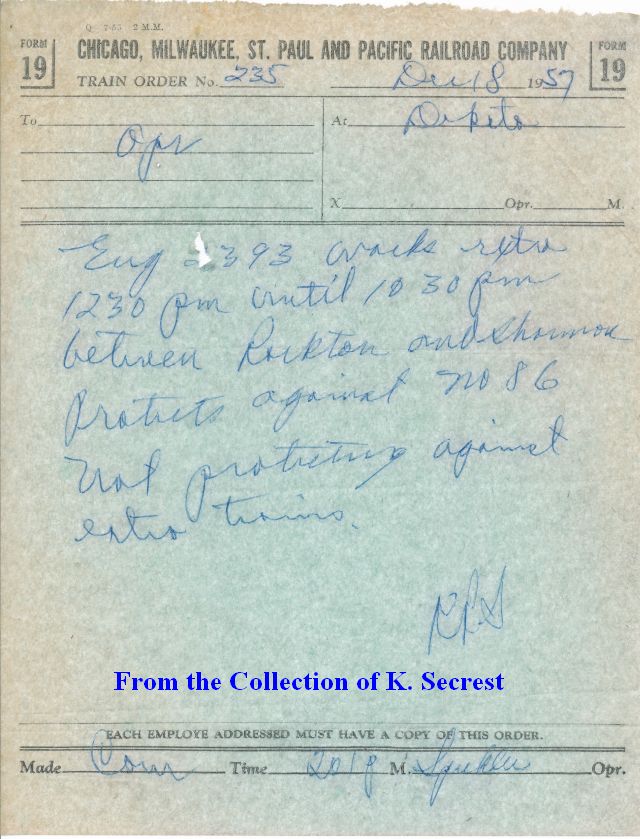 Q 7-55 2 M.M.
FORM 19
CHICAGO, MILWAUKEE, ST. PAUL AND PACIFIC RAILROAD COMPANY
FORM 19
TRAIN ORDER No. 235 Dec 18 1957
To Opr
At
X Opr. M.
Eng 2393 works extra
1230 pm until 1030 pm
between Rockton and Shannon
Protects against No 86
Not protecting against
extra trains.
From the Collection of K. Secrest
EACH EMPLOYE ADDRESSED MUST HAVE A COPY OF THIS ORDER.
Made Com Time 201 P M. Opr.